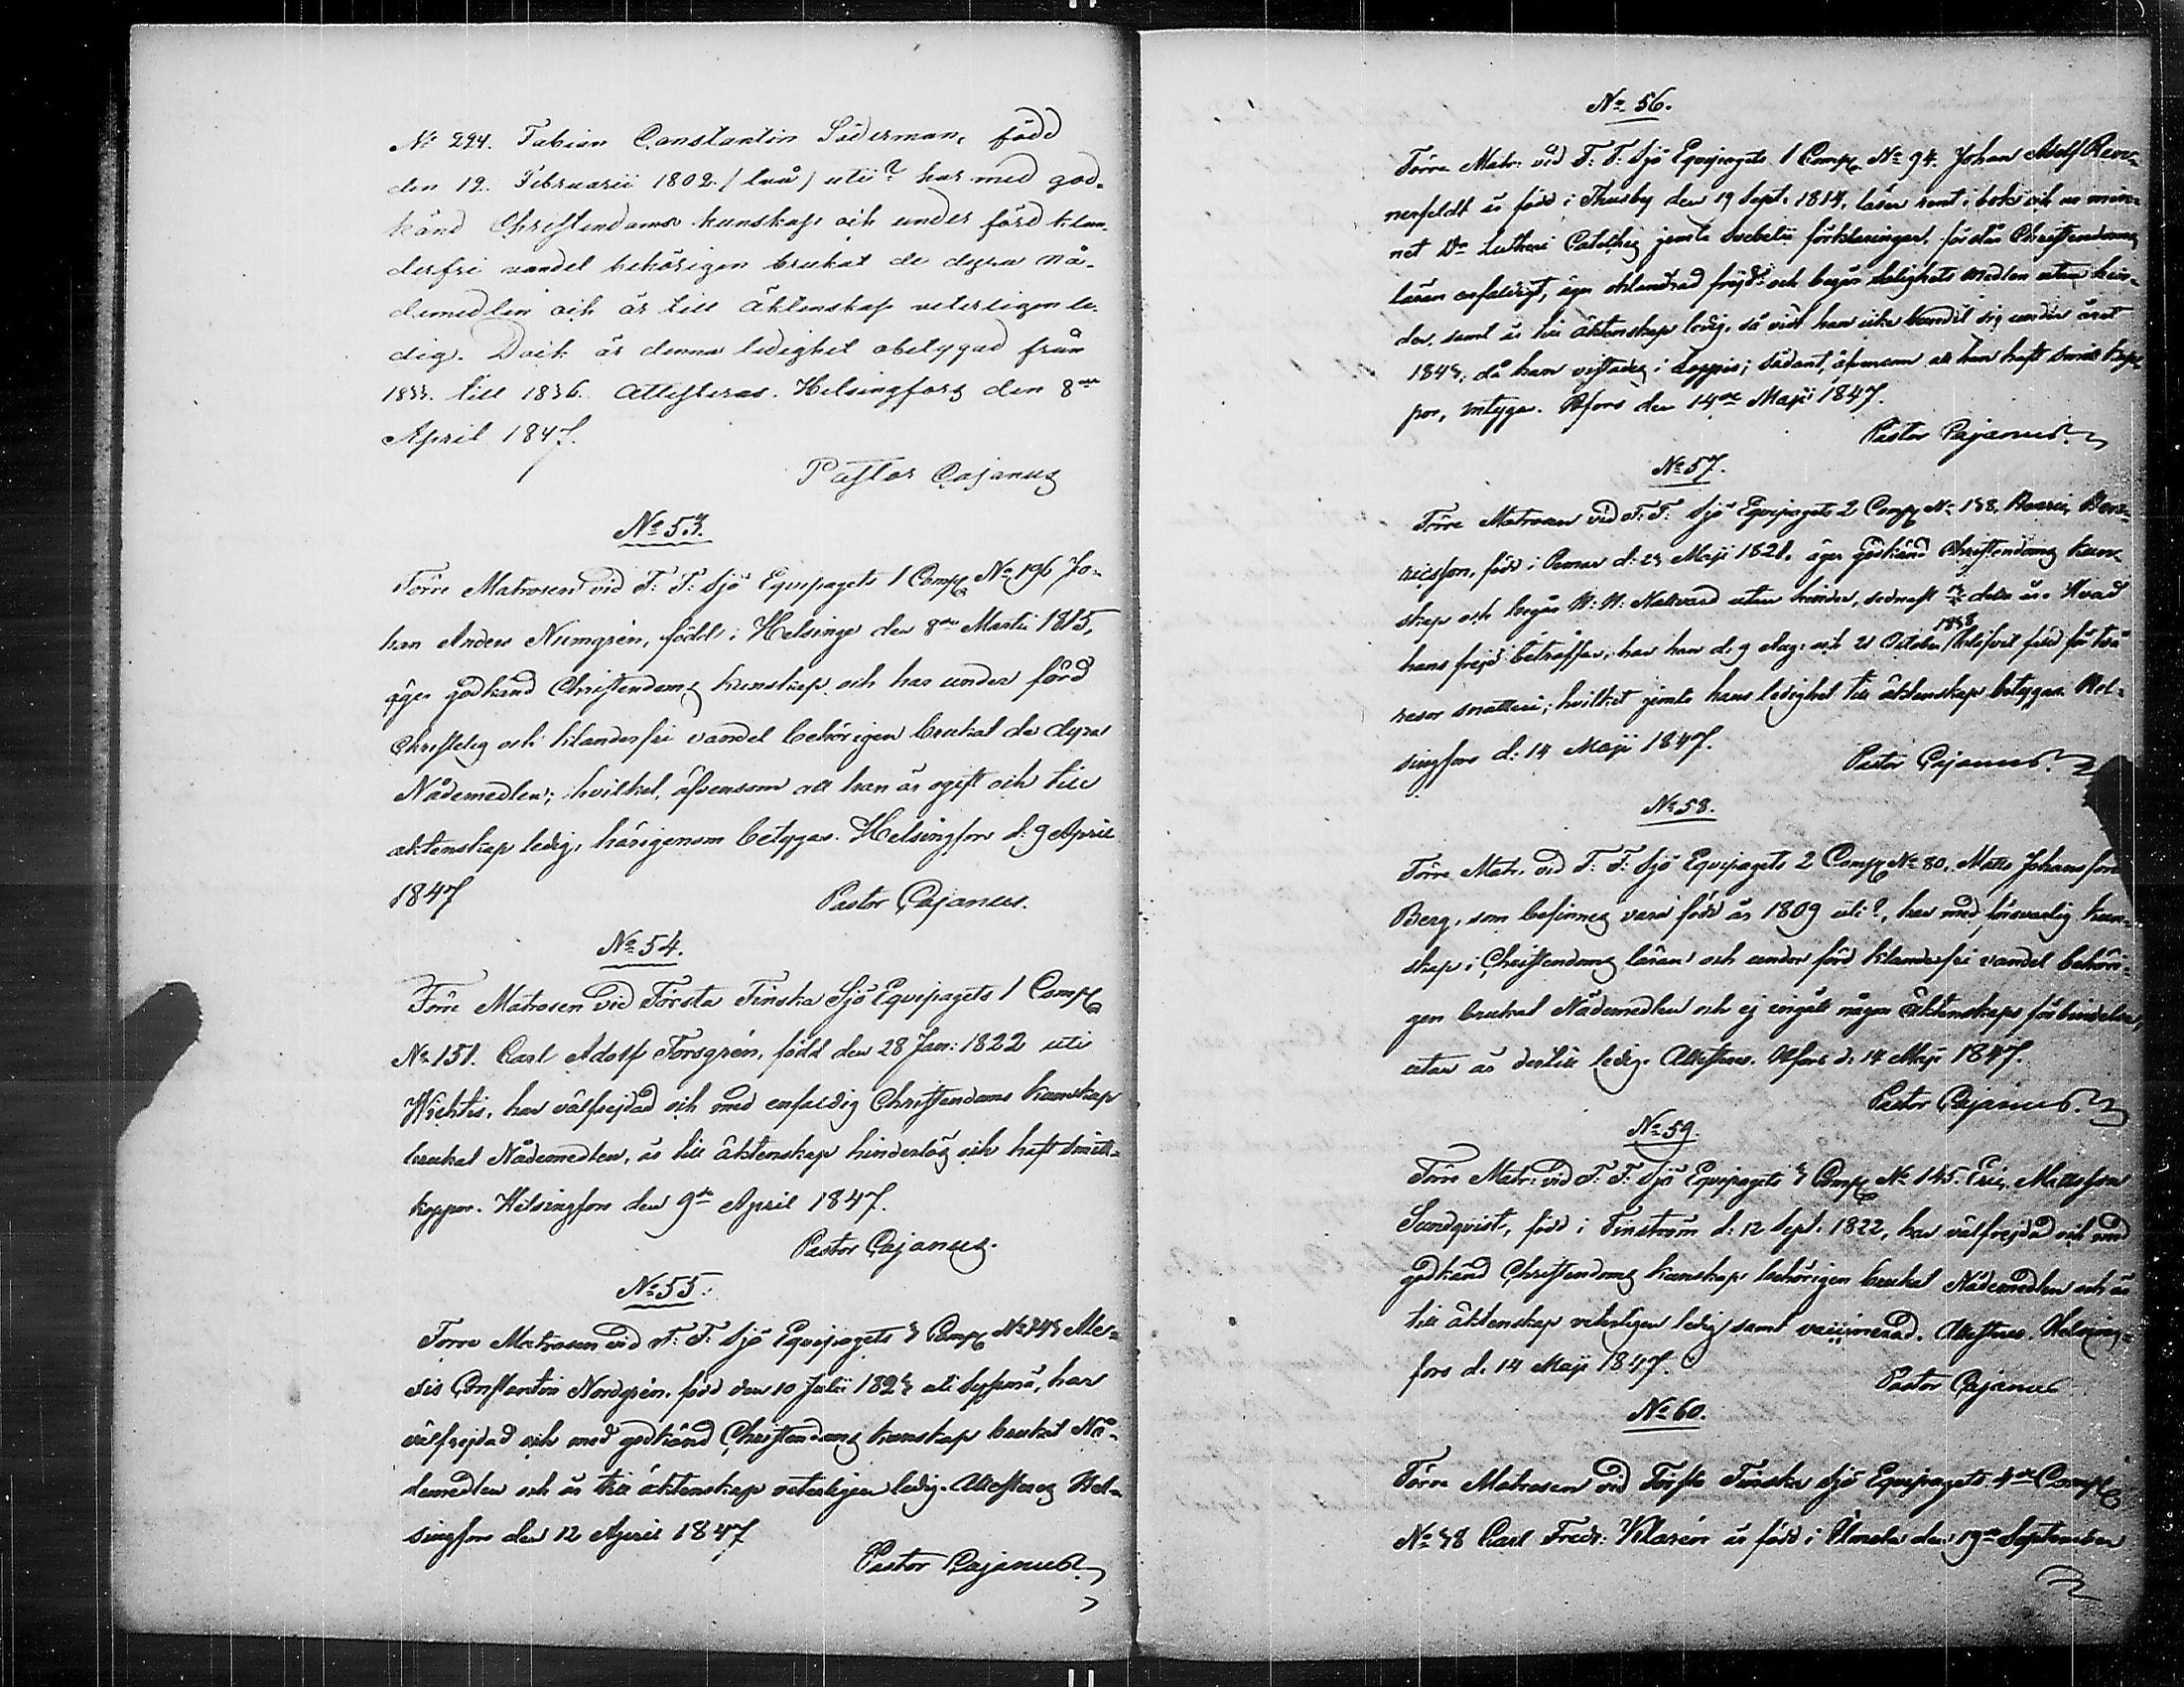 No 224. Fabian Constantin Söderman, född
den 12. Februarii 1802. (två) uti? har med god-
känd Christendoms kunskap och under förd klan-
derfri vandel behörigen brukat de dyra Nå-
demedlen och är till äktenskap veterligen le-
dig. Dock är denna ledighet obetygad från
1833. till 1836. Attesteras. Helsingfors den 8de
April 1847.
Pastor Cajanus
No 53.
Förre Matrosen vid F: F: Sjö Equipagets 1 Comp No 196 Jo-
han Anders Numgrén, född i Helsinge den 8de Martii 1815,
äger godkänd Christendoms kunskap och har under förd
Christelig och klanderfri vandel behörigen brukat de dyra
Nådemedlen; hvilket, äfvensom att han är ogift och till
äktenskap ledig, härigenom betygas. Helsingfors d: 9 April
1847
Pastor Cajanus.
No 54.
Förre Matrosen vid Första Finska Sjö Equipagets 1 Comp
No 151. Carl Adolf Forsgrén, född den 28 Jan: 1822 uti
Wichtis, har välfrejdad och med enfaldig Christendoms kunskap
brukat Nådemedlen, är till äktenskap hinderlös och haft smitt-
koppor. Helsingfors den 9de April 1847.
Pastor Cajanus.
No 55.
Förre Matrosen vid F: F: Sjö Equipagets 3 Comp No 243 Ale-
xis Constantin Nordgrén, född den 10 Julii 1823 uti, har
välfrejdad och med godkänd Christendoms kunskap brukat Nå-
demedlen och är till äktenskap veterligen ledig. Attesteras Hel-
singfors den 12 April 1847
Pastor Cajanus.
No 56.
Förre Matr: vid F: F: Sjö Equipagets 1 Comp No 94. Johan Adolf Ren-
nerfeldt är född i Thusby den 19 Sept. 1814, läser rent i bok och ur min-
net Dr Lutheri Cateches jemte Svebelii förklaringar, förstår Christendoms
läran enfaldigt, äger oklandrad frejd och begår salighets medlen utan hin-
der, samt är till äktenskap ledig, så vidt han icke bundit sig under året
1843, då han vistades i Loppis; sådant, äfvensom att han haft smittkop-
por, intygar. Hfors den 14de Maji 1847.
Pastor Cajanus.
No 57.
Förre Matrosen vid F: F: Sjö Equipagets 2 Comp No 138, Henric Hen-
ricsson, född i Pemar d: 23 Maji 1821. äger godkänd Christendoms kun-
skap och begår H: H: Nattvard utan hinder, sednast detta år. Hvad
hans frejd beträffar, har han d. 9 Aug. och 21 October 1838 blifvit för två
resor snatteri; hvilket jemte hans ledighet till äktenskap betygas. Hel-
singfors d: 14 Maji 1847.
Pastor Cajanus.
No 58.
Förre Matr. vid F: F: Sjö Equipagets 2 Comp No 80, Matts Johansson
Berg, som befinnes vara född år 1809 uti?, har med försvarlig kun-
skap i Christendoms läran och under förd klanderfri vandel behöri-
gen brukat Nådemedlen och ej ingått någon äktenskaps förbindelse,
utan är dertill ledig. Attesteras. Hfors d: 14 Maji 1847.
Pastor Cajanus.
No 59.
Förre Matr: vid F: F: Sjö Equipagets 3 Comp No 145. Eric Mattsson
Sundqvist, född i Finström d: 12 Sept. 1822, har välfrejdad och med
godkänd Christendoms kunskap behörigen brukat Nådemedlen och är
till äktenskap veterligen ledig samt vaccinerad. Attesteras. Helsing-
fors d. 14 Maji 1847.
Pastor Cajanus
No 60.
Förre Matrosen vid Första Finska Sjö Equipagets 4de Comp
No 38 Carl Fredr: Klarén är född i den 19de September